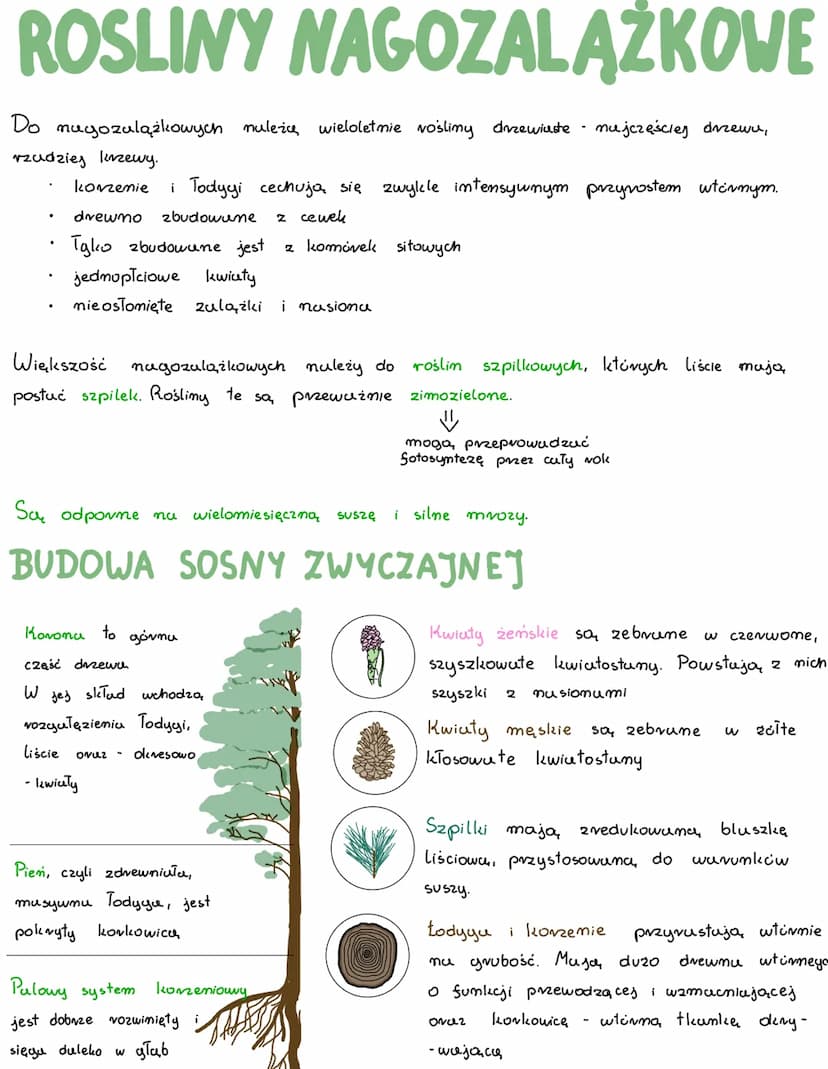 ROSLINY NAGOZALĄŻKOWE
Do nagozalążkowych należą wieloletnie rośliny drzewiaste - najczęściej drzewa,
rzadziej krzewy.
· korzenie i łodygi cechują się zwykle intensywnym przyrostem wtórnym.
· drewno zbudowane z cewek
· Łyko zbudowane jest z komórek sitowych
· jednopłciowe kwiaty
· nieosłonięte zalążki i nasiona
Większość nagozalążkowych należy do roślin szpilkowych, których liście mają
postać szpilek. Rośliny te są przeważnie zimozielone.
mogą przeprowadzać
fotosyntezę przez cały rok
Są odporne na wielomiesięczną suszę i silne mrozy.
BUDOWA SOSNY ZWYCZAJNEJ
Korona to górna
część drzewa
W jej skład wchodzą
rozgałęzienia łodygi,
liście oraz - okresowo
- kwiaty
Pień, czyli zdrewniała,
masywna łodyga, jest
pokryty korkowicą
Palowy system korzeniowy
jest dobrze rozwinięty i
sięga daleko w głąb
Kwiaty żeńskie są zebrane w czerwone,
szyszkowate kwiatostany. Powstają z nich
szyszki z nasionami
Kwiaty męskie są zebrane w żółte
kłosowate kwiatostany
Szpilki mają zredukowaną blaszkę
liściową, przystosowaną do warunków
suszy.
Łodyga i korzenie przyrastają wtórnie
na grubość. Mają dużo drewna wtórnego
o funkcji przewodzącej i wzmacniającej
oraz korkowicę - wtórną tkankę okry-
-wającą